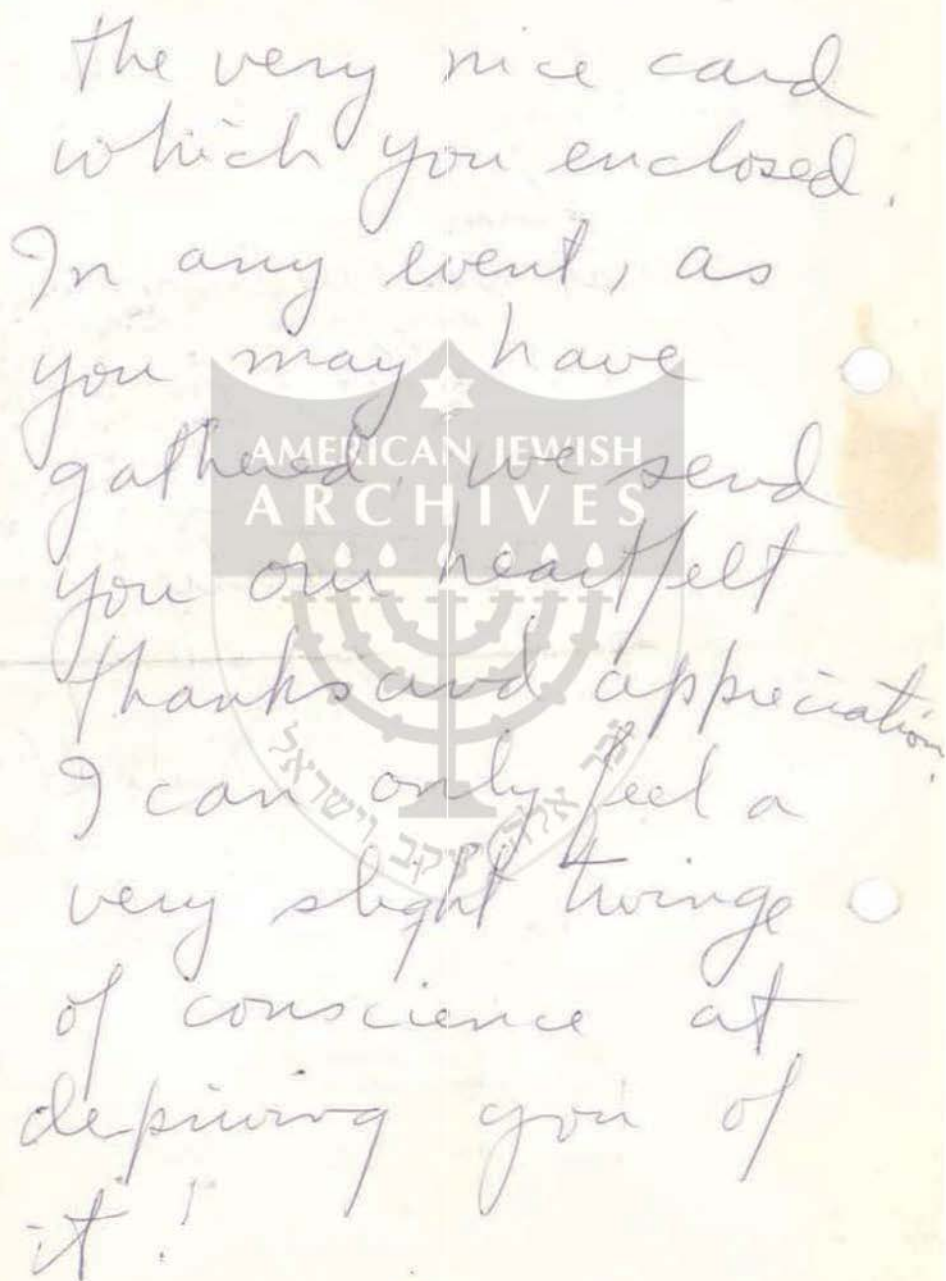 the very nice card
which you enclosed.
In any event, as
you may have
gathered, we send
you our heartfelt
thanks and appreciation.
I can only feel a
very slight twinge
of conscience at
depriving you of
it!
AMERICAN JEWISH
ARCHIVES